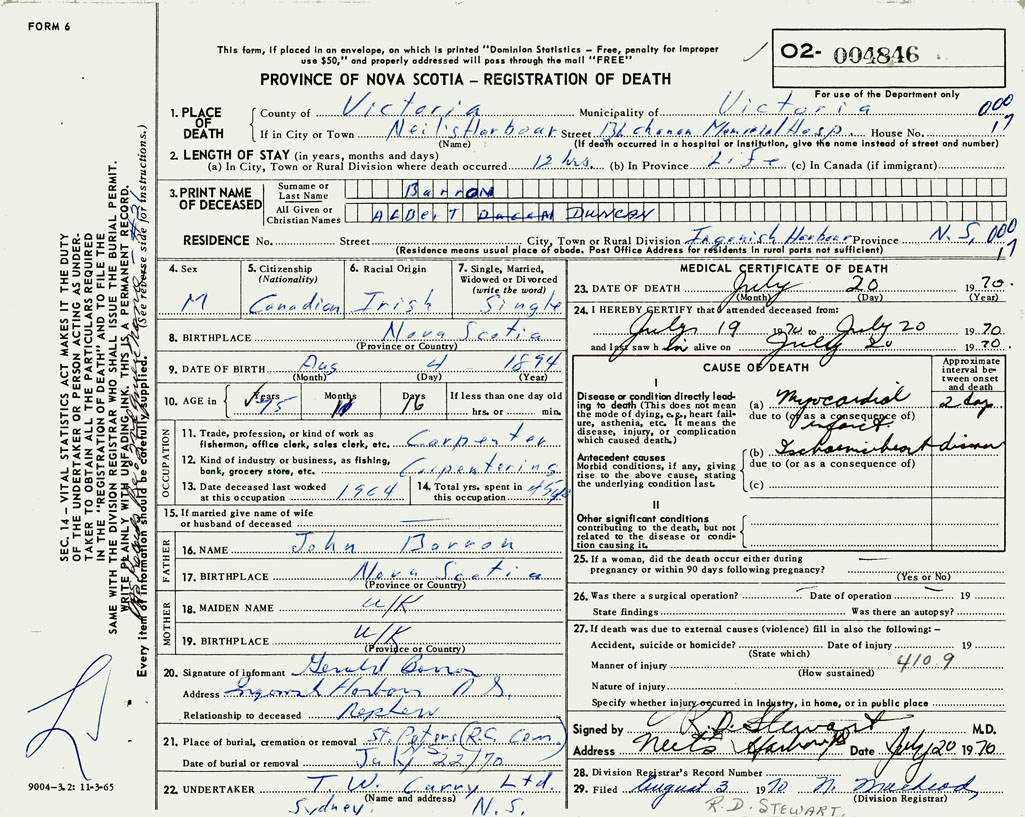 FORM 6
This form, if placed in an envelope, on which is printed "Dominion Statistics – Free, penalty for improper
use $50," and properly addressed will pass through the mail "FREE"
PROVINCE OF NOVA SCOTIA – REGISTRATION OF DEATH
02- 004846
For use of the Department only
1. PLACE OF DEATH
County of Victoria Municipality of Victoria 000
If in City or Town Neil's Harbour Street Buchanan Memorial Hosp. House No. 17
(Name) (If death occurred in a hospital or institution, give the name instead of street and number)
2. LENGTH OF STAY (in years, months and days)
(a) In City, Town or Rural Division where death occurred 12 hrs. (b) In Province Life (c) In Canada (if immigrant)
3. PRINT NAME OF DECEASED
Surname or Last Name Barron
All Given or Christian Names Albert Duncan
RESIDENCE No. Street City, Town or Rural Division Ingonish Harbour Province N.S. 000
(Residence means usual place of abode. Post Office Address for residents in rural parts not sufficient) 17
4. Sex M
5. Citizenship (Nationality) Canadian
6. Racial Origin Irish
7. Single, Married, Widowed or Divorced (write the word) Single
8. BIRTHPLACE Nova Scotia
(Province or Country)
9. DATE OF BIRTH Aug 4 1894
(Month) (Day) (Year)
10. AGE in Years 75 Months 11 Days 16 If less than one day old
hrs. or min.
OCCUPATION
11. Trade, profession, or kind of work as
fisherman, office clerk, sales clerk, etc. Carpenter
12. Kind of industry or business, as fishing,
bank, grocery store, etc. Carpentering
13. Date deceased last worked
at this occupation 1964
14. Total yrs. spent in
this occupation
15. If married give name of wife
or husband of deceased —
FATHER
16. NAME John Barron
17. BIRTHPLACE Nova Scotia
(Province or Country)
MOTHER
18. MAIDEN NAME U/K
19. BIRTHPLACE U/K
(Province or Country)
20. Signature of informant Gerald Barron
Address Ingonish Harbour N.S.
Relationship to deceased Nephew
21. Place of burial, cremation or removal St. Peters (R.C. Cem.)
Date of burial or removal July 22/70
22. UNDERTAKER T. W. Curry Ltd.
(Name and address)
Sydney N.S.
MEDICAL CERTIFICATE OF DEATH
23. DATE OF DEATH July 20 1970.
(Month) (Day) (Year)
24. I HEREBY CERTIFY that I attended deceased from:
July 19 1970 to July 20 1970.
and last saw him alive on July 20 1970.
CAUSE OF DEATH
Approximate interval between onset and death
I
Disease or condition directly leading to death (This does not mean the mode of dying, e.g., heart failure, asthenia, etc. It means the disease, injury, or complication which caused death.)
(a) Myocardial 2 day
due to (or as a consequence of)
infarct.
Antecedent causes
Morbid conditions, if any, giving rise to the above cause, stating the underlying condition last.
(b) Ischaemic heart disease
due to (or as a consequence of)
(c)
II
Other significant conditions
contributing to the death, but not related to the disease or condition causing it.
25. If a woman, did the death occur either during
pregnancy or within 90 days following pregnancy? —
(Yes or No)
26. Was there a surgical operation? Date of operation 19
State findings Was there an autopsy?
27. If death was due to external causes (violence) fill in also the following: –
Accident, suicide or homicide? Date of injury 19
(State which)
Manner of injury 410.9
(How sustained)
Nature of injury
Specify whether injury occurred in Industry, in home, or in public place
Signed by R.D. Stewart M.D.
Address Neils Harbour Date July 20 1970
28. Division Registrar's Record Number
29. Filed August 3 1970 N. MacLeod
(Division Registrar)
R.D. STEWART.
SEC. 14 – VITAL STATISTICS ACT MAKES IT THE DUTY
OF THE UNDERTAKER OR PERSON ACTING AS UNDER-
TAKER TO OBTAIN ALL THE PARTICULARS REQUIRED
IN THE "REGISTRATION OF DEATH" AND TO FILE THE
SAME WITH THE DIVISION REGISTRAR WHO SHALL ISSUE THE BURIAL PERMIT.
WRITE PLAINLY WITH UNFADING INK. THIS IS A PERMANENT RECORD.
Every item of information should be carefully supplied. (See reverse side for instructions.)
9004-3.2: 11-3-65